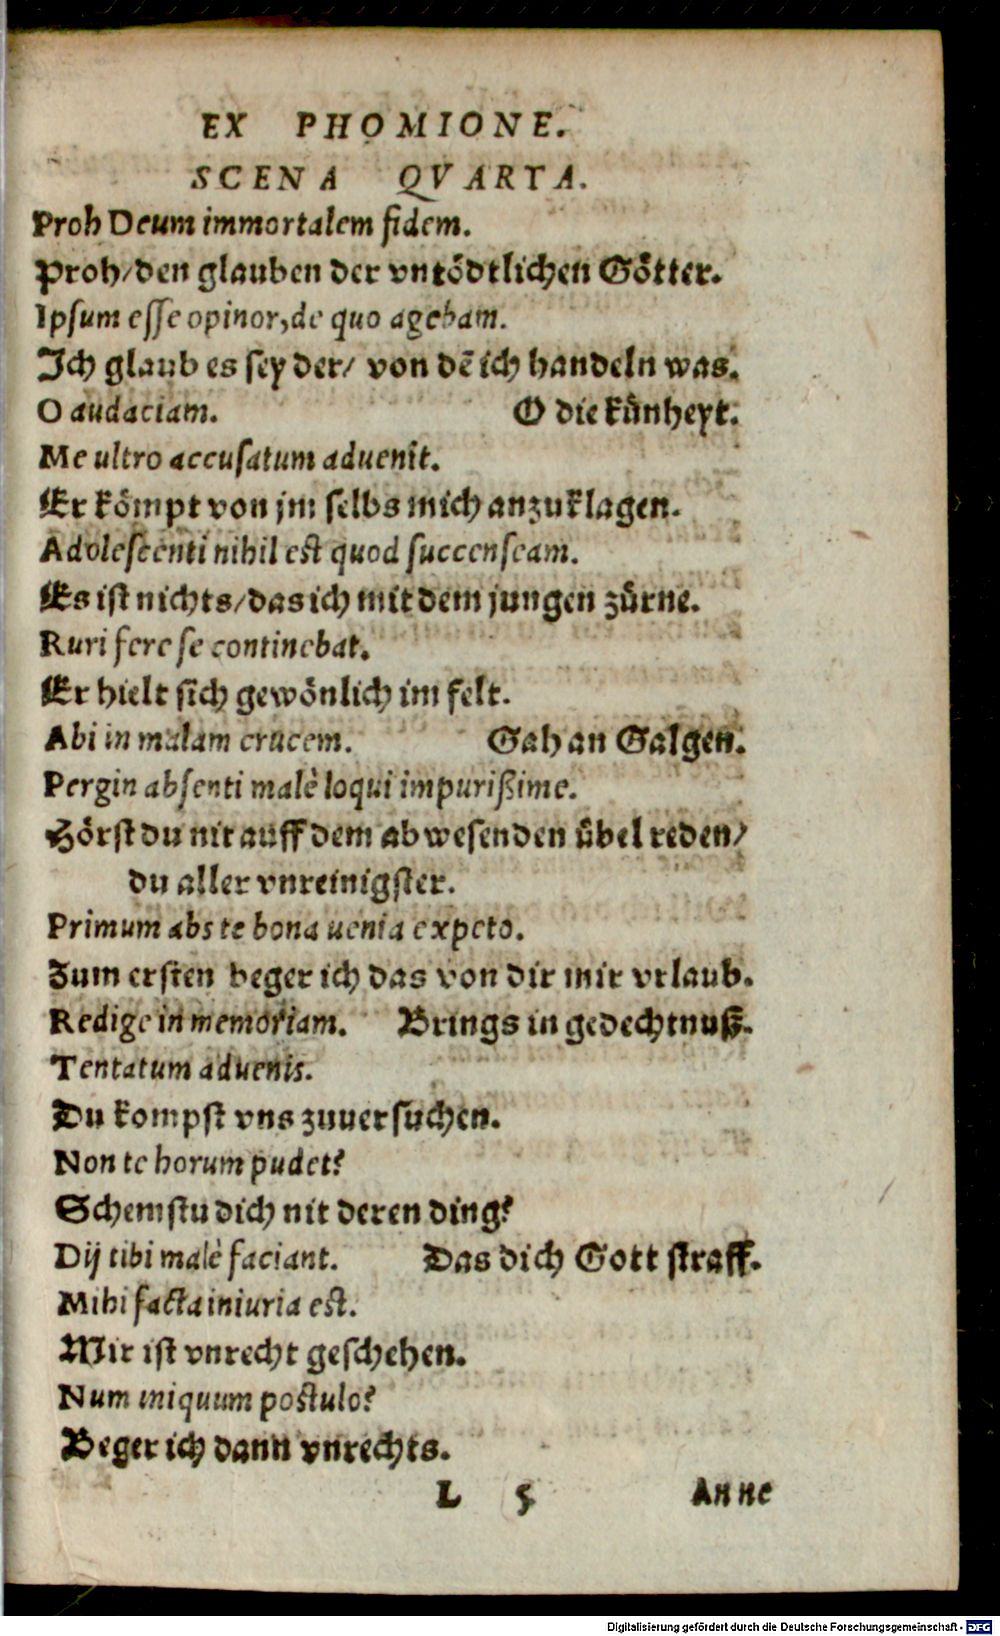 EX PHOMIONE.
SCENA QVARTA.
Proh Deum immortalem fidem.
Proh/den glauben der vntödtlichen Götter.
Ipsum esse opinor, de quo agebam.
Ich glaub es sey der/ von dē ich handeln was.
O audaciam. O die künheyt.
Me ultro accusatum aduenit.
Er kömpt von jm selbs mich anzuklagen.
Adolescenti nihil est quod succenseam.
Es ist nichts/das ich mit dem jungen zürne.
Ruri fere se continebat.
Er hielt sich gewönlich im felt.
Abi in malam crucem. Gah an Galgen.
Pergin absenti malè loqui impurißime.
Hörst du nit auff dem abwesenden übel reden/
du aller vnreinigster.
Primum abs te bona uenia expeto.
Zum ersten beger ich das von dir mit vrlaub.
Redige in memoriam. Brings in gedechtnuß.
Tentatum aduenis.
Du kompst vns zuuersuchen.
Non te horum pudet?
Schemstu dich nit deren ding?
Dij tibi malè faciant. Das dich Gott straff.
Mihi facta iniuria est.
Mir ist vnrecht geschehen.
Num iniquum postulo?
Beger ich dann vnrechts.
L 5 Anne
Digitalisierung gefördert durch die Deutsche Forschungsgemeinschaft - DFG